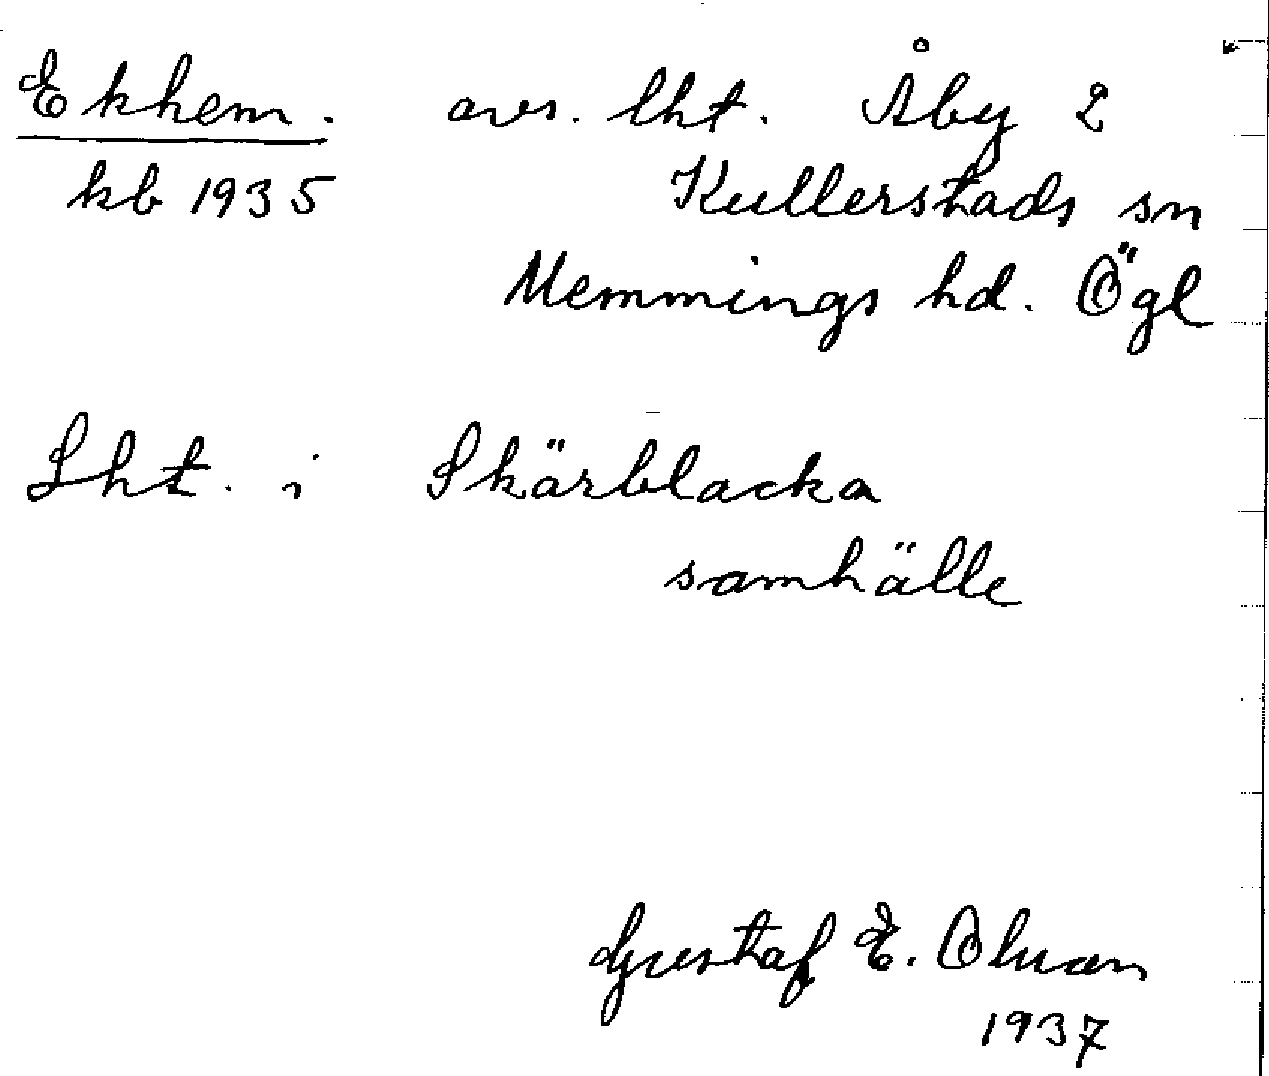 Ekhem. avs. lht. Åby 2
kb 1935 Kullerstads sn
Memmings hd. Ögl
Lht. i Skärblacka
samhälle
Gustaf E. Olsson
1937